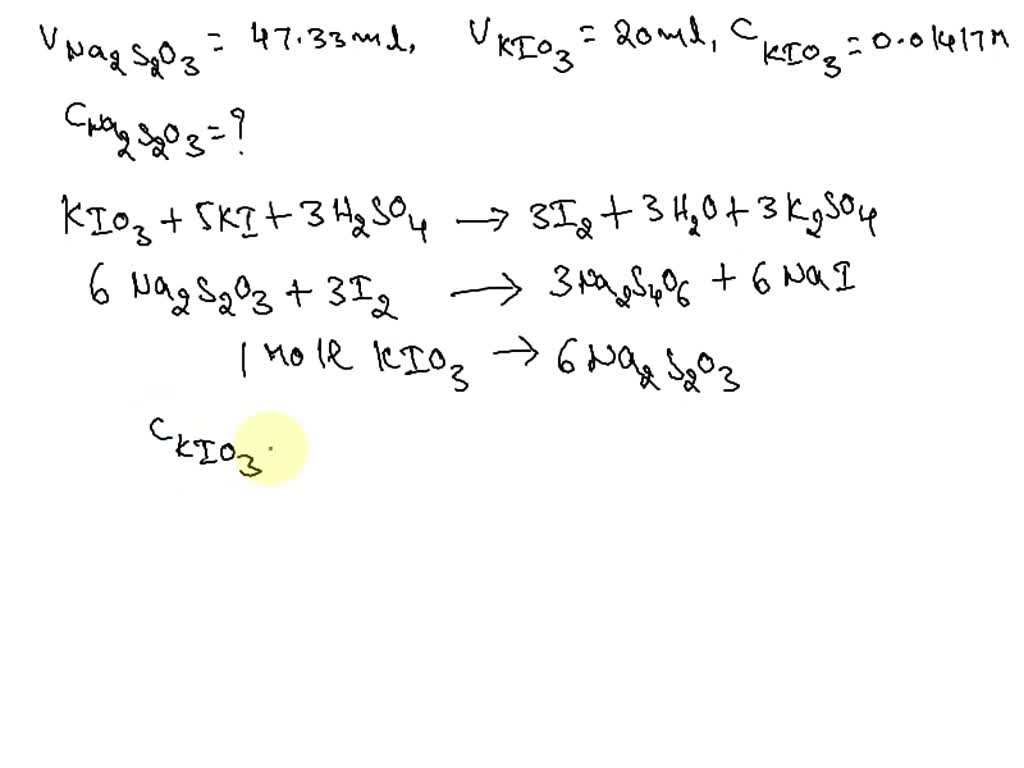 V Na2S2O3 = 47.33ml, V KIO3 = 20ml, C KIO3 = 0.01417M
C Na2S2O3 = ?
KIO3 + 5KI + 3H2SO4 → 3I2 + 3H2O + 3K2SO4
6 Na2S2O3 + 3I2 → 3Na2S4O6 + 6NaI
1 mole KIO3 → 6Na2S2O3
C KIO3